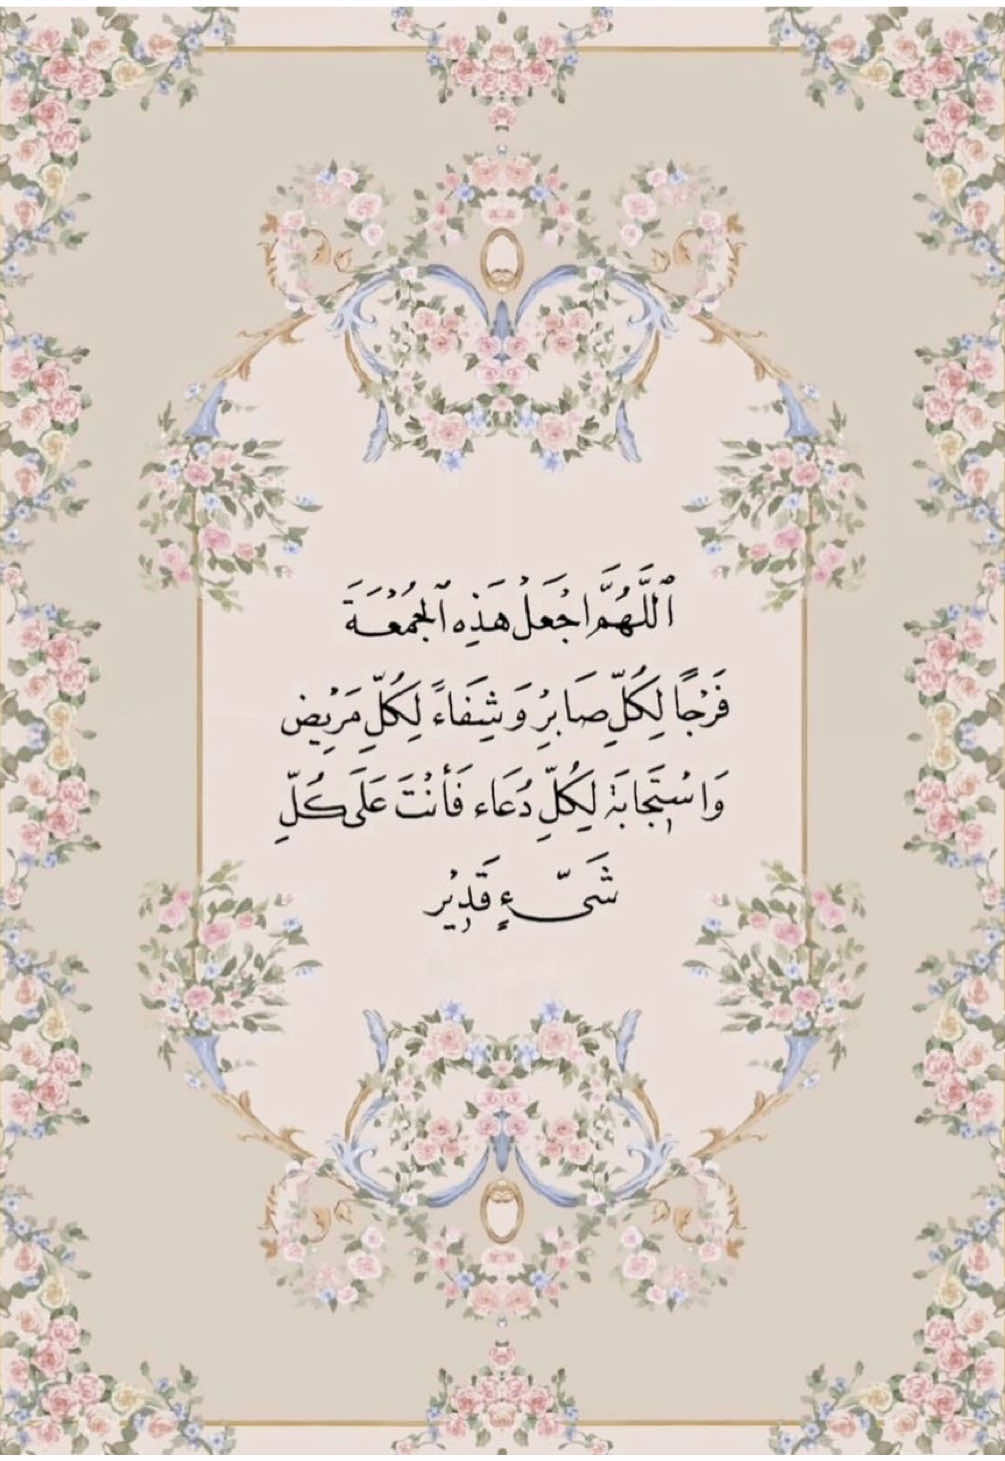 ٱللَّهُمَّ اجْعَلْ هَذِهِ ٱلجُمُعَةَ
فَرْجًا لِكُلِّ صَابِرْ وَشِفَاءً لِكُلِّ مَرْيِض
وَاسْتِجَابَة لِكُلِّ دُعَاء فَأَنْتَ عَلَى كُلِّ
شَيّءٍ قَدِيْر